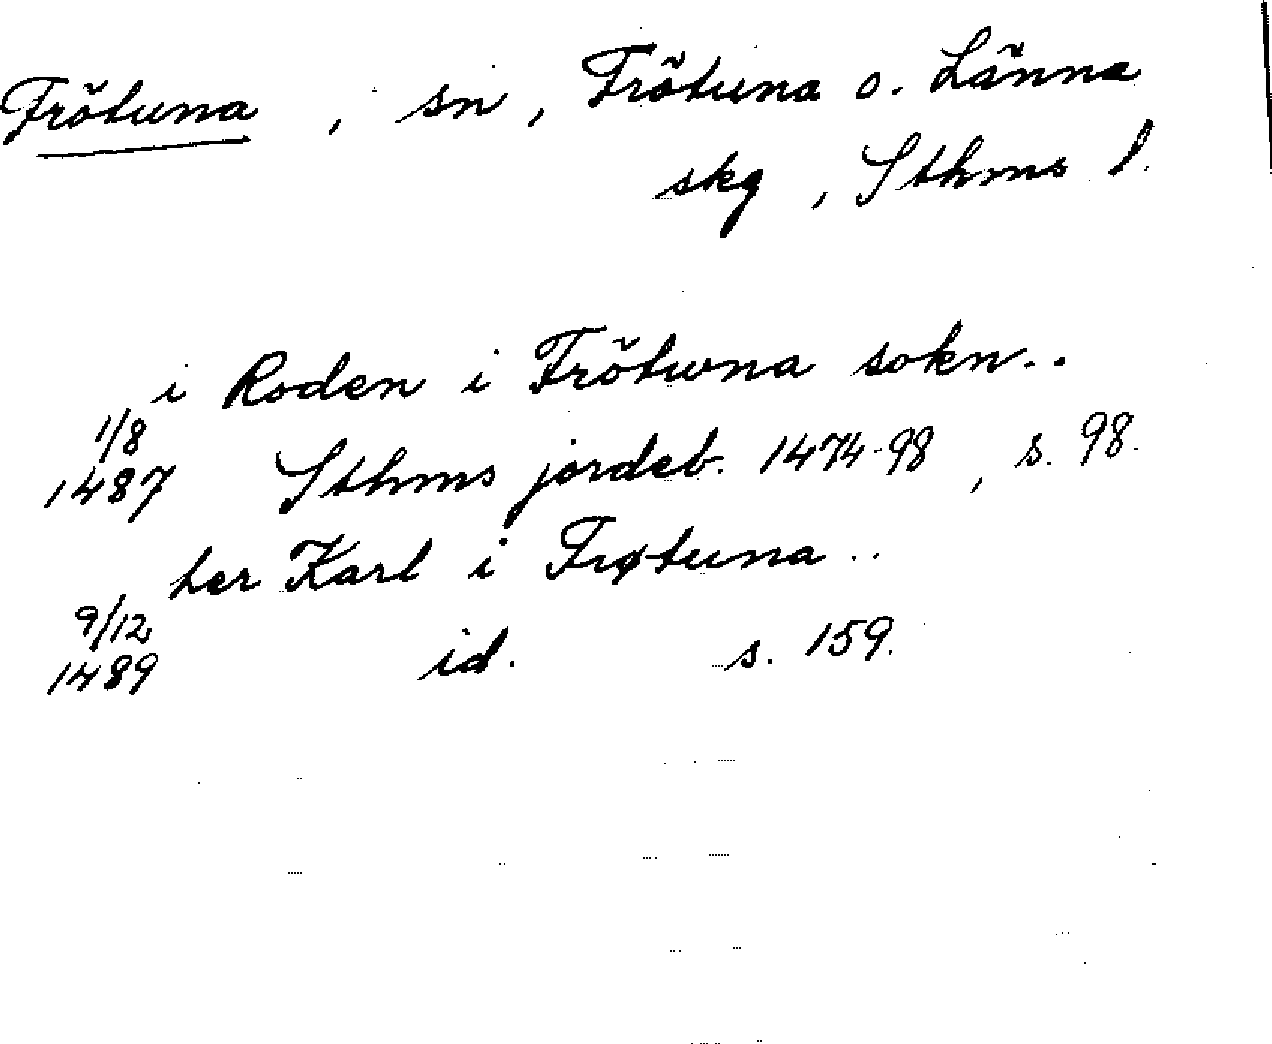 Frötuna, sn, Frötuna o. Länna
skg, Sthms l.
i Roden i Frötwna sokn..
1/8
1487 Sthms jordeb. 1474-98, s. 98.
her Karl i Frøtuna..
9/12
1489 id. s. 159.